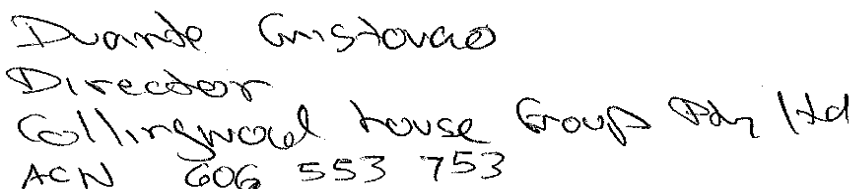 Duarte Cristovao
Director
Collingwood House Group Pty Ltd
ACN 606 553 753